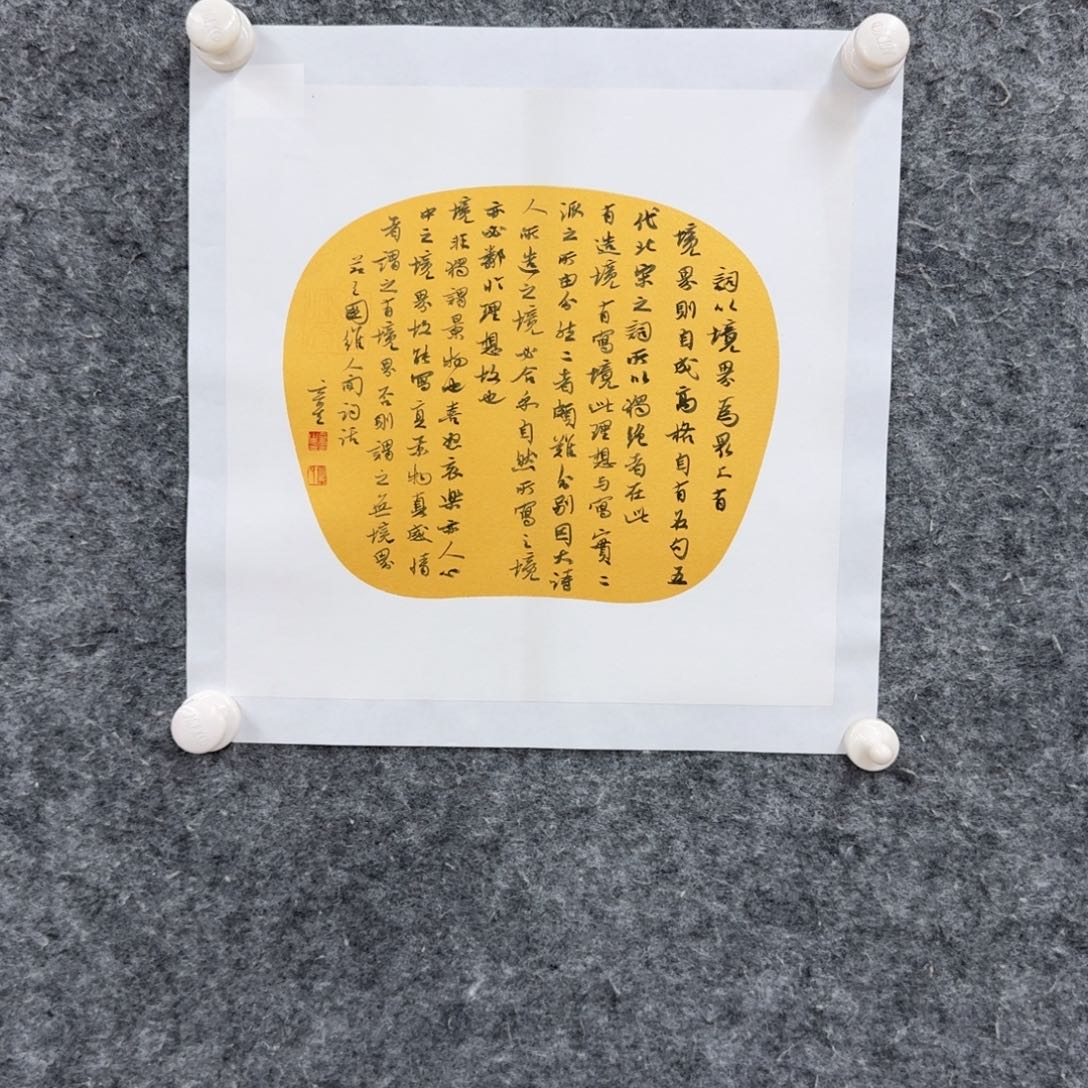 詞以境界爲最上有
境界則自成高格自有名句五
代北宋之詞所以獨絶者在此
有造境有寫境此理想与寫實二
派之所由分然二者頗難分别因大詩
人所造之境必合乎自然所寫之境
亦必鄰於理想故也
境非獨謂景物也喜怒哀樂亦人心
中之境界故能寫真景物真感情
者謂之有境界否則謂之無境界
王國維人间词话